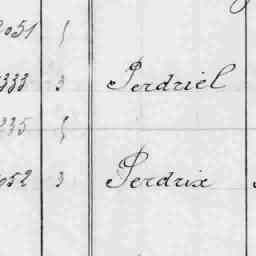 2051 5
333 3 Perdriel
235 5
052 3 Perdrix